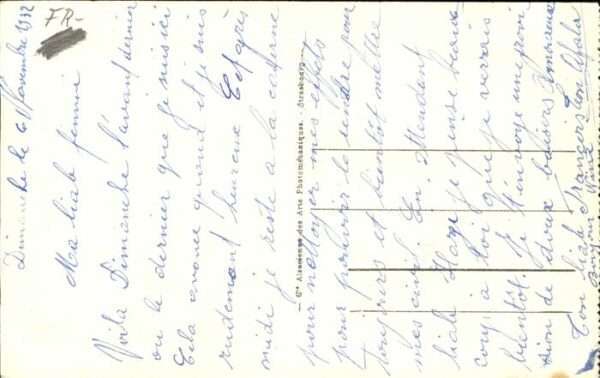 FR-
Dimanche le 6 Novembre 1932
Ma liab femme
Voila Dimanche l'avant dernier
ou le dernier que je suis ici
Cela avance quand et je suis
rudement heureux Cet après
midi je reste a la caserne
— Cie Alsacienne des Arts Photomécaniques, Strasbourg —
pour nettoyer mes effets
pour pouvoir le rendre pour
toujours et bientôt mettre
mes civil. En attendant
liab je pense beau
coup à toi que je verrais
bientôt. Je t'envoye une provi
sion de doux baisers amoureux
Ton liab François ton
Bonjour Nana